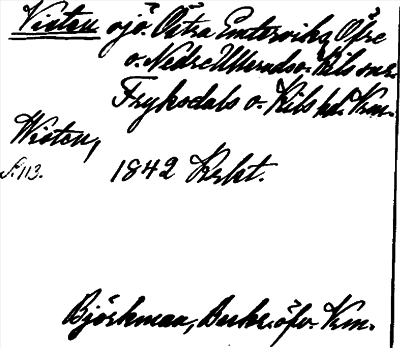 Visten sjö. Östra Emtervik, Övre
o. Nedre Ulleruds o. Kils snr.
Fryksdals o. Kils hd. Vrm.
Wisten,
S. 113. 1842 Krkt.
Björkman, Beskr. öfv. Vrm.